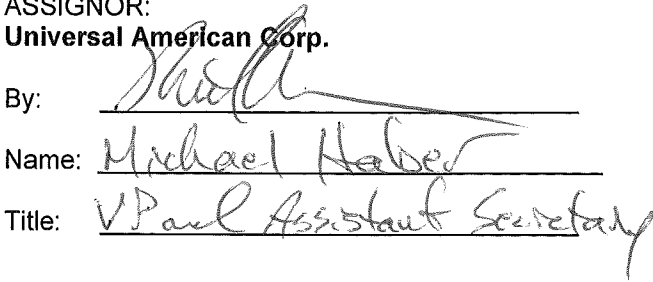 ASSIGNOR:
Universal American Corp.
By:
Name: Michael Haber
Title: VP and Assistant Secretary